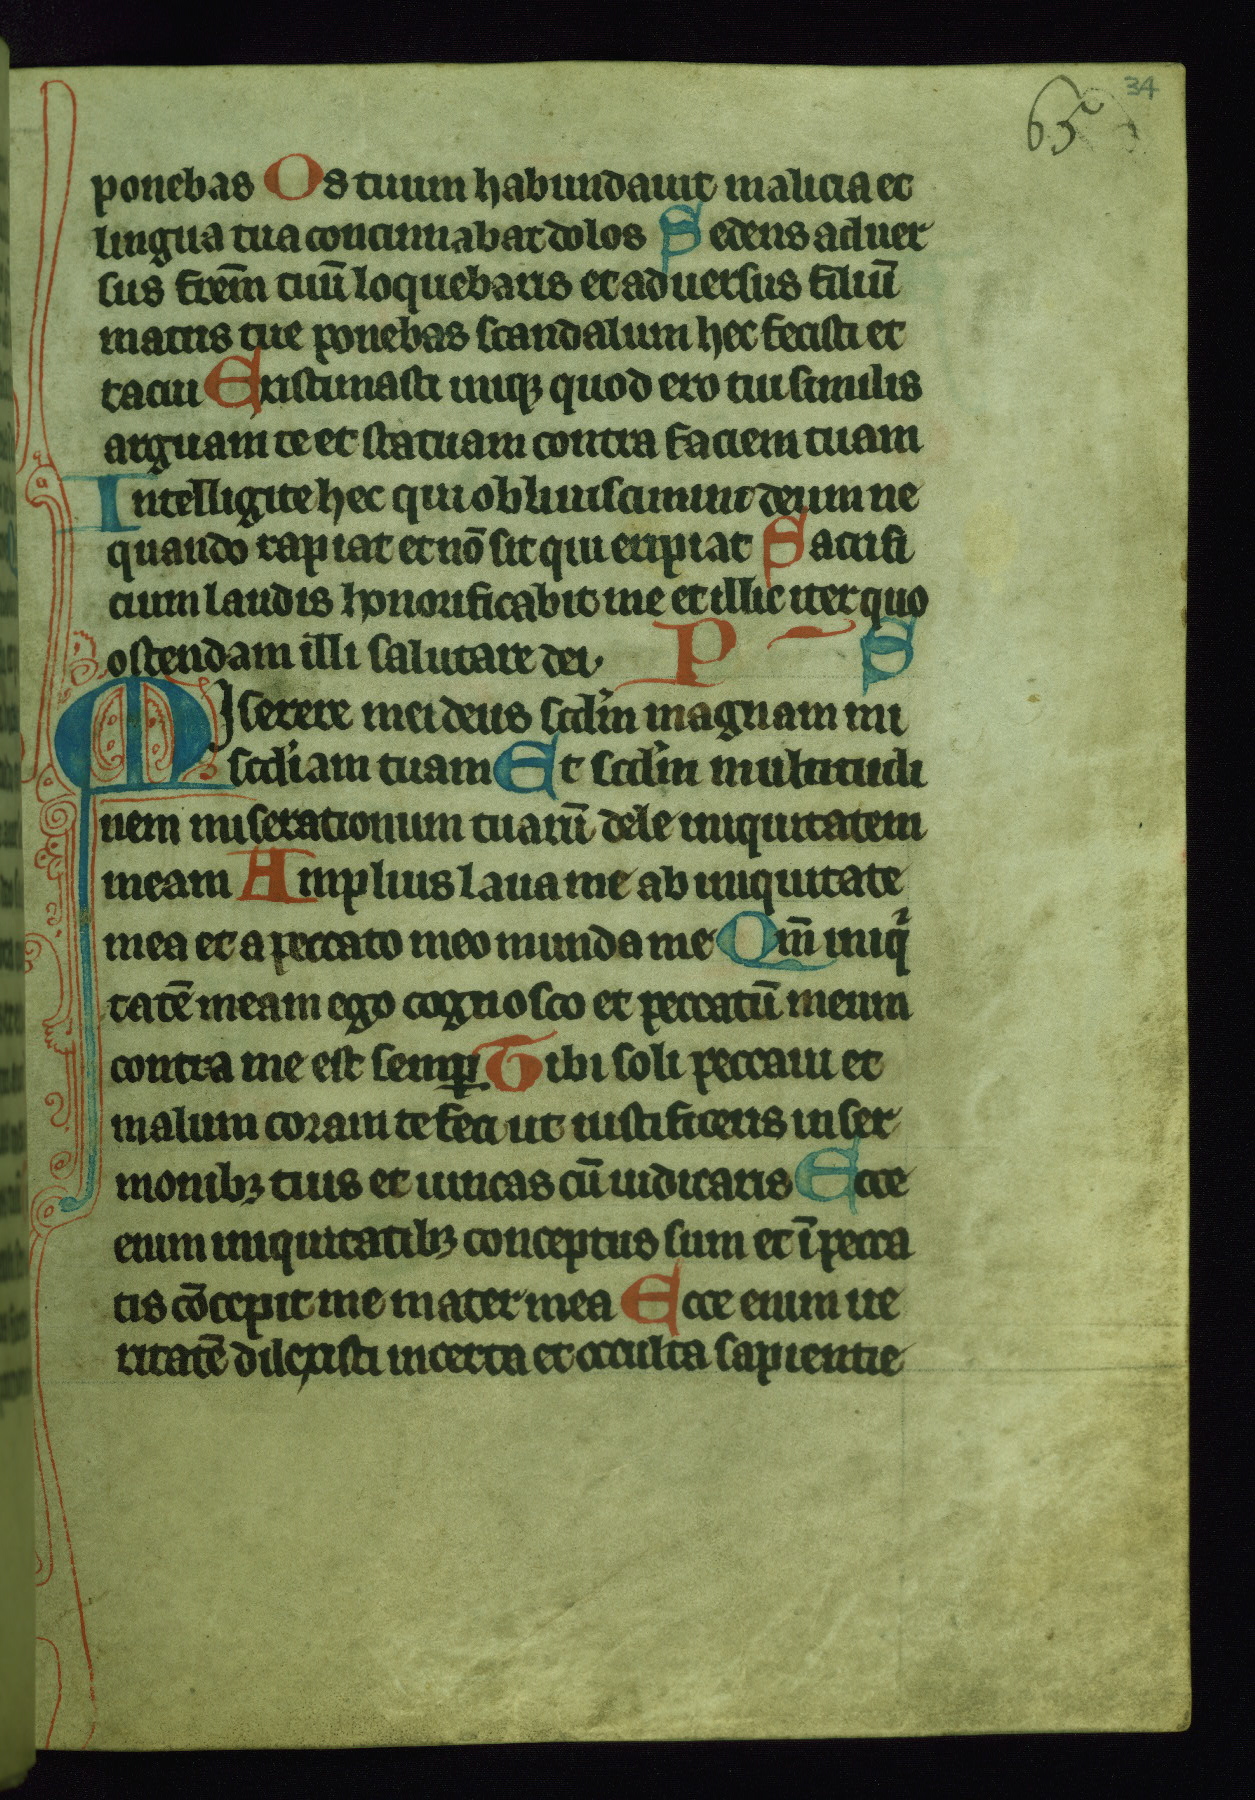 34
65
ponebas Os tuum habundauit malicia et
lingua tua concinnabat dolos Sedens aduer
sus frēm tuū loquebaris et aduersus filiū
matris tue ponebas scandalum hec fecisti et
tacui Existimasti iniqꝫ quod ero tui similis
arguam te et statuam contra faciem tuam
Intelligite hec qui obliuiscimini deum ne
quando rapiat et nō sit qui eripiat Sacrifi
cium laudis honorificabit me et illic iter quo
ostendam illi salutare dei P S
Miserere mei deus scd'm magnam mi
scd'iam tuam Et scd'm multitudi
nem miserationum tuarū dele iniquitatem
meam Amplius laua me ab iniquitate
mea et a peccato meo munda me Qm̄ iniqͥ
tatē meam ego cognosco et peccatū meum
contra me est semꝑ Tibi soli peccaui et
malum coram te feci ut iustificeris in ser
monibꝫ tuis et uincas cū iudicaris Ecce
enim iniquitatibꝫ conceptus sum et ī pecca
tis cōcepit me mater mea Ecce enim ue
ritatē dilexisti incerta et occulta sapientie